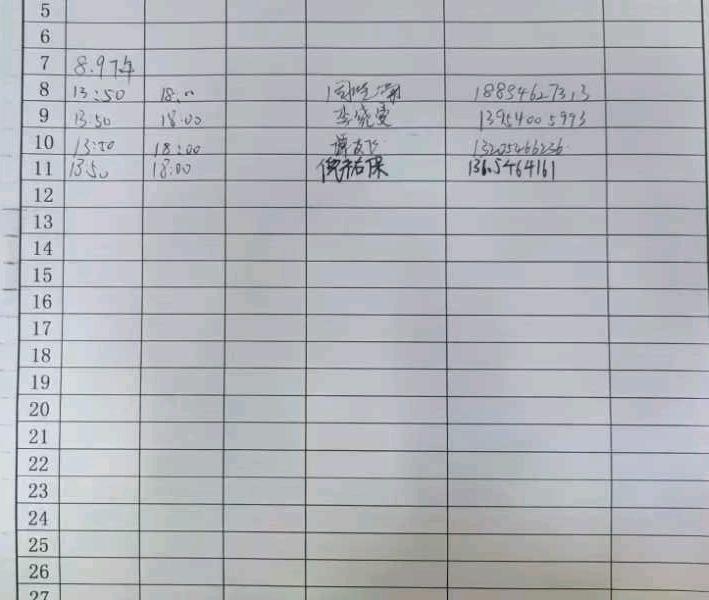 5
6
7 8.9下午
8 13:50 18:00 18854627313
9 13:50 18:00 李晓雯 13954005993
10 13:50 18:00 13205466236
11 13:50 18:00 倪祐保
12
13
14
15
16
17
18
19
20
21
22
23
24
25
26
27